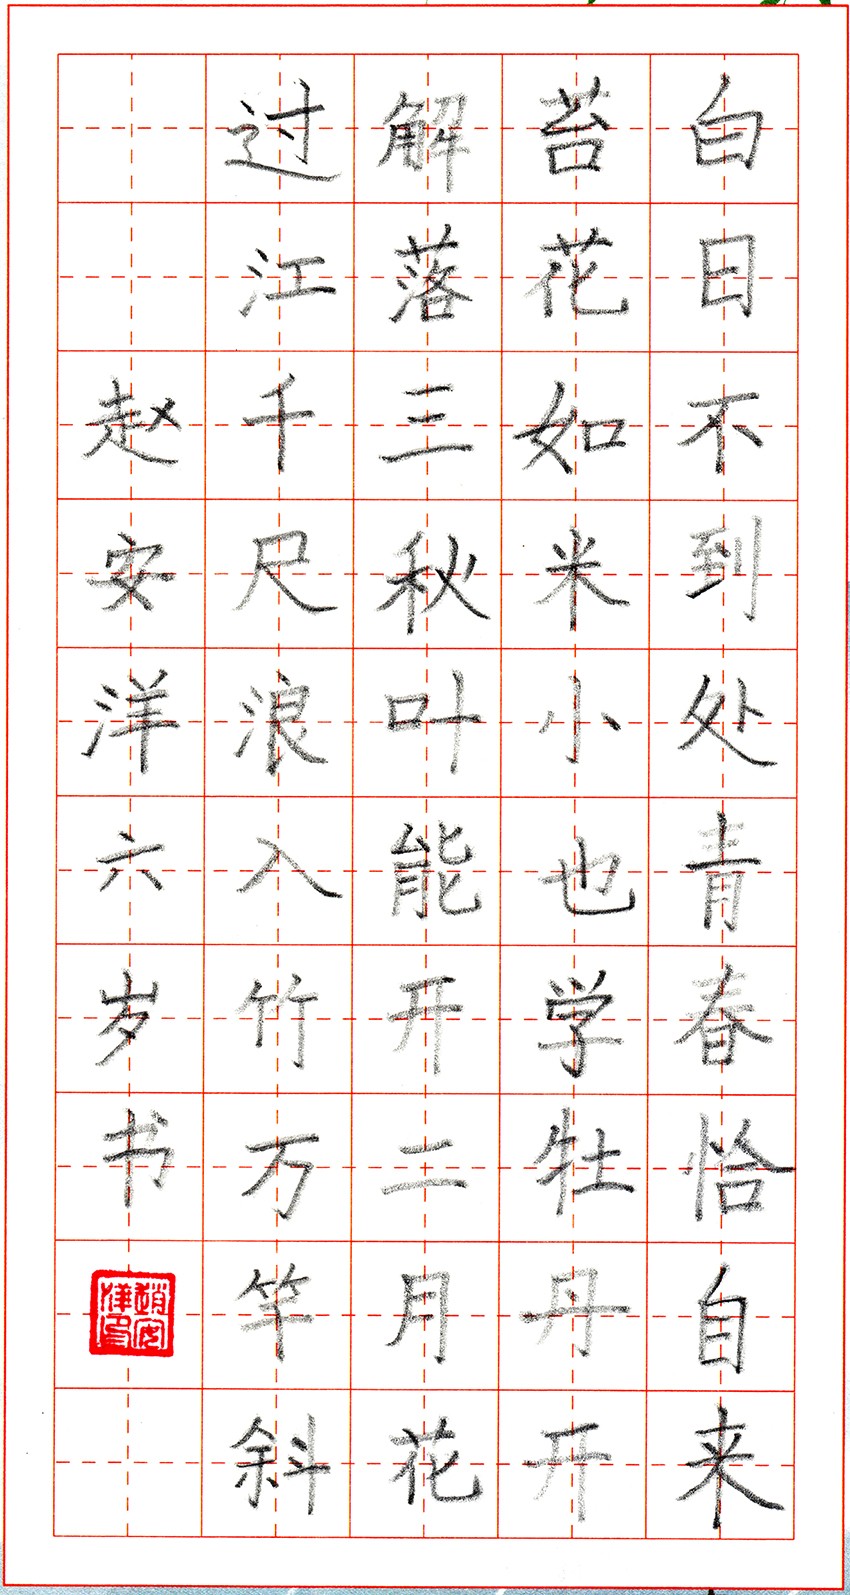 白日不到处青春恰自来
苔花如米小也学牡丹开
解落三秋叶能开二月花
过江千尺浪入竹万竿斜
赵安洋六岁书
趙安洋印